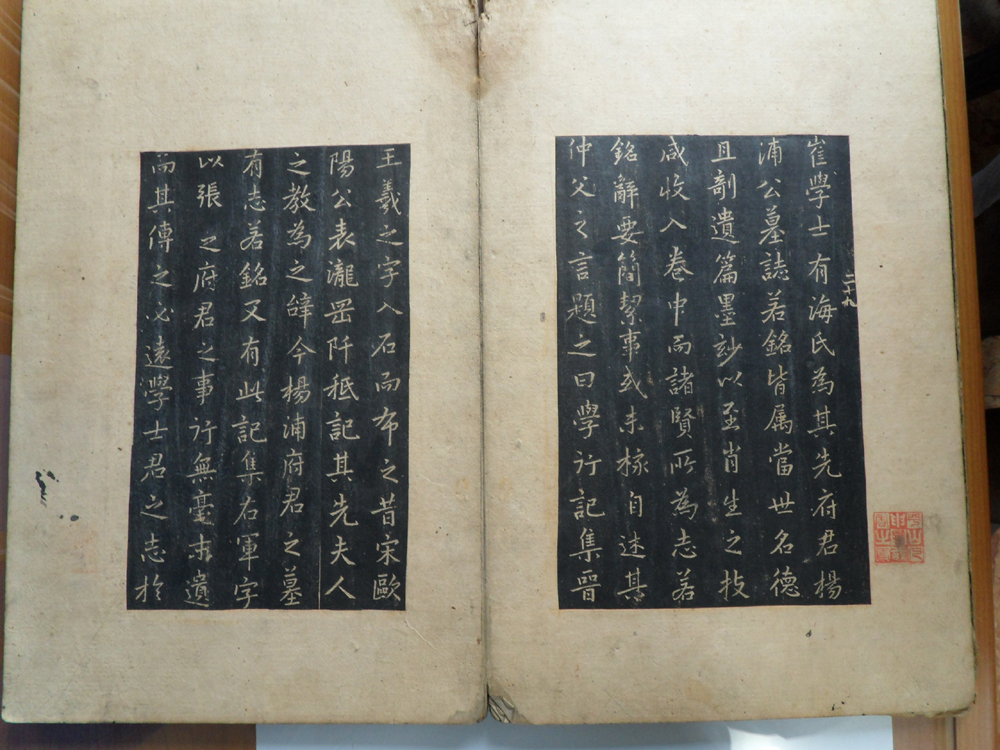 崔學士有海氏為其先府君楊
浦公墓誌若銘皆属當世名德
且剞遺篇墨妙以至肖生之技
咸收入卷中而諸賢所為志若
銘辭要簡絜事或未核自述其
仲父之言題之曰學行記集晉
二十九
王羲之字入石而布之昔宋歐
陽公表瀧罡阡秪記其先夫人
之教為之辞今楊浦府君之墓
有志若銘又有此記集右軍字
以張之府君之事行無毫末遺
而其傳之必遠學士君之志於